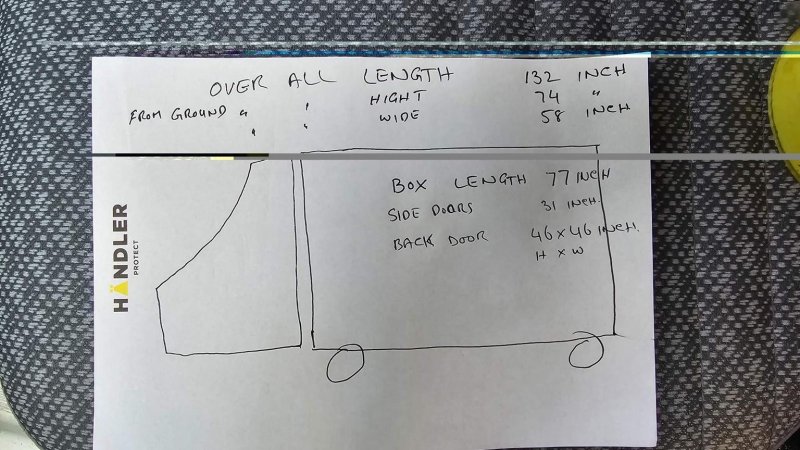 OVER ALL LENGTH 132 INCH
HIGHT 74 "
FROM GROUND " " WIDE 58 INCH
BOX LENGTH 77 INCH
SIDE DOORS 31 INCH.
BACK DOOR 46 x 46 INCH.
H x W
HÄNDLER
PROTECT